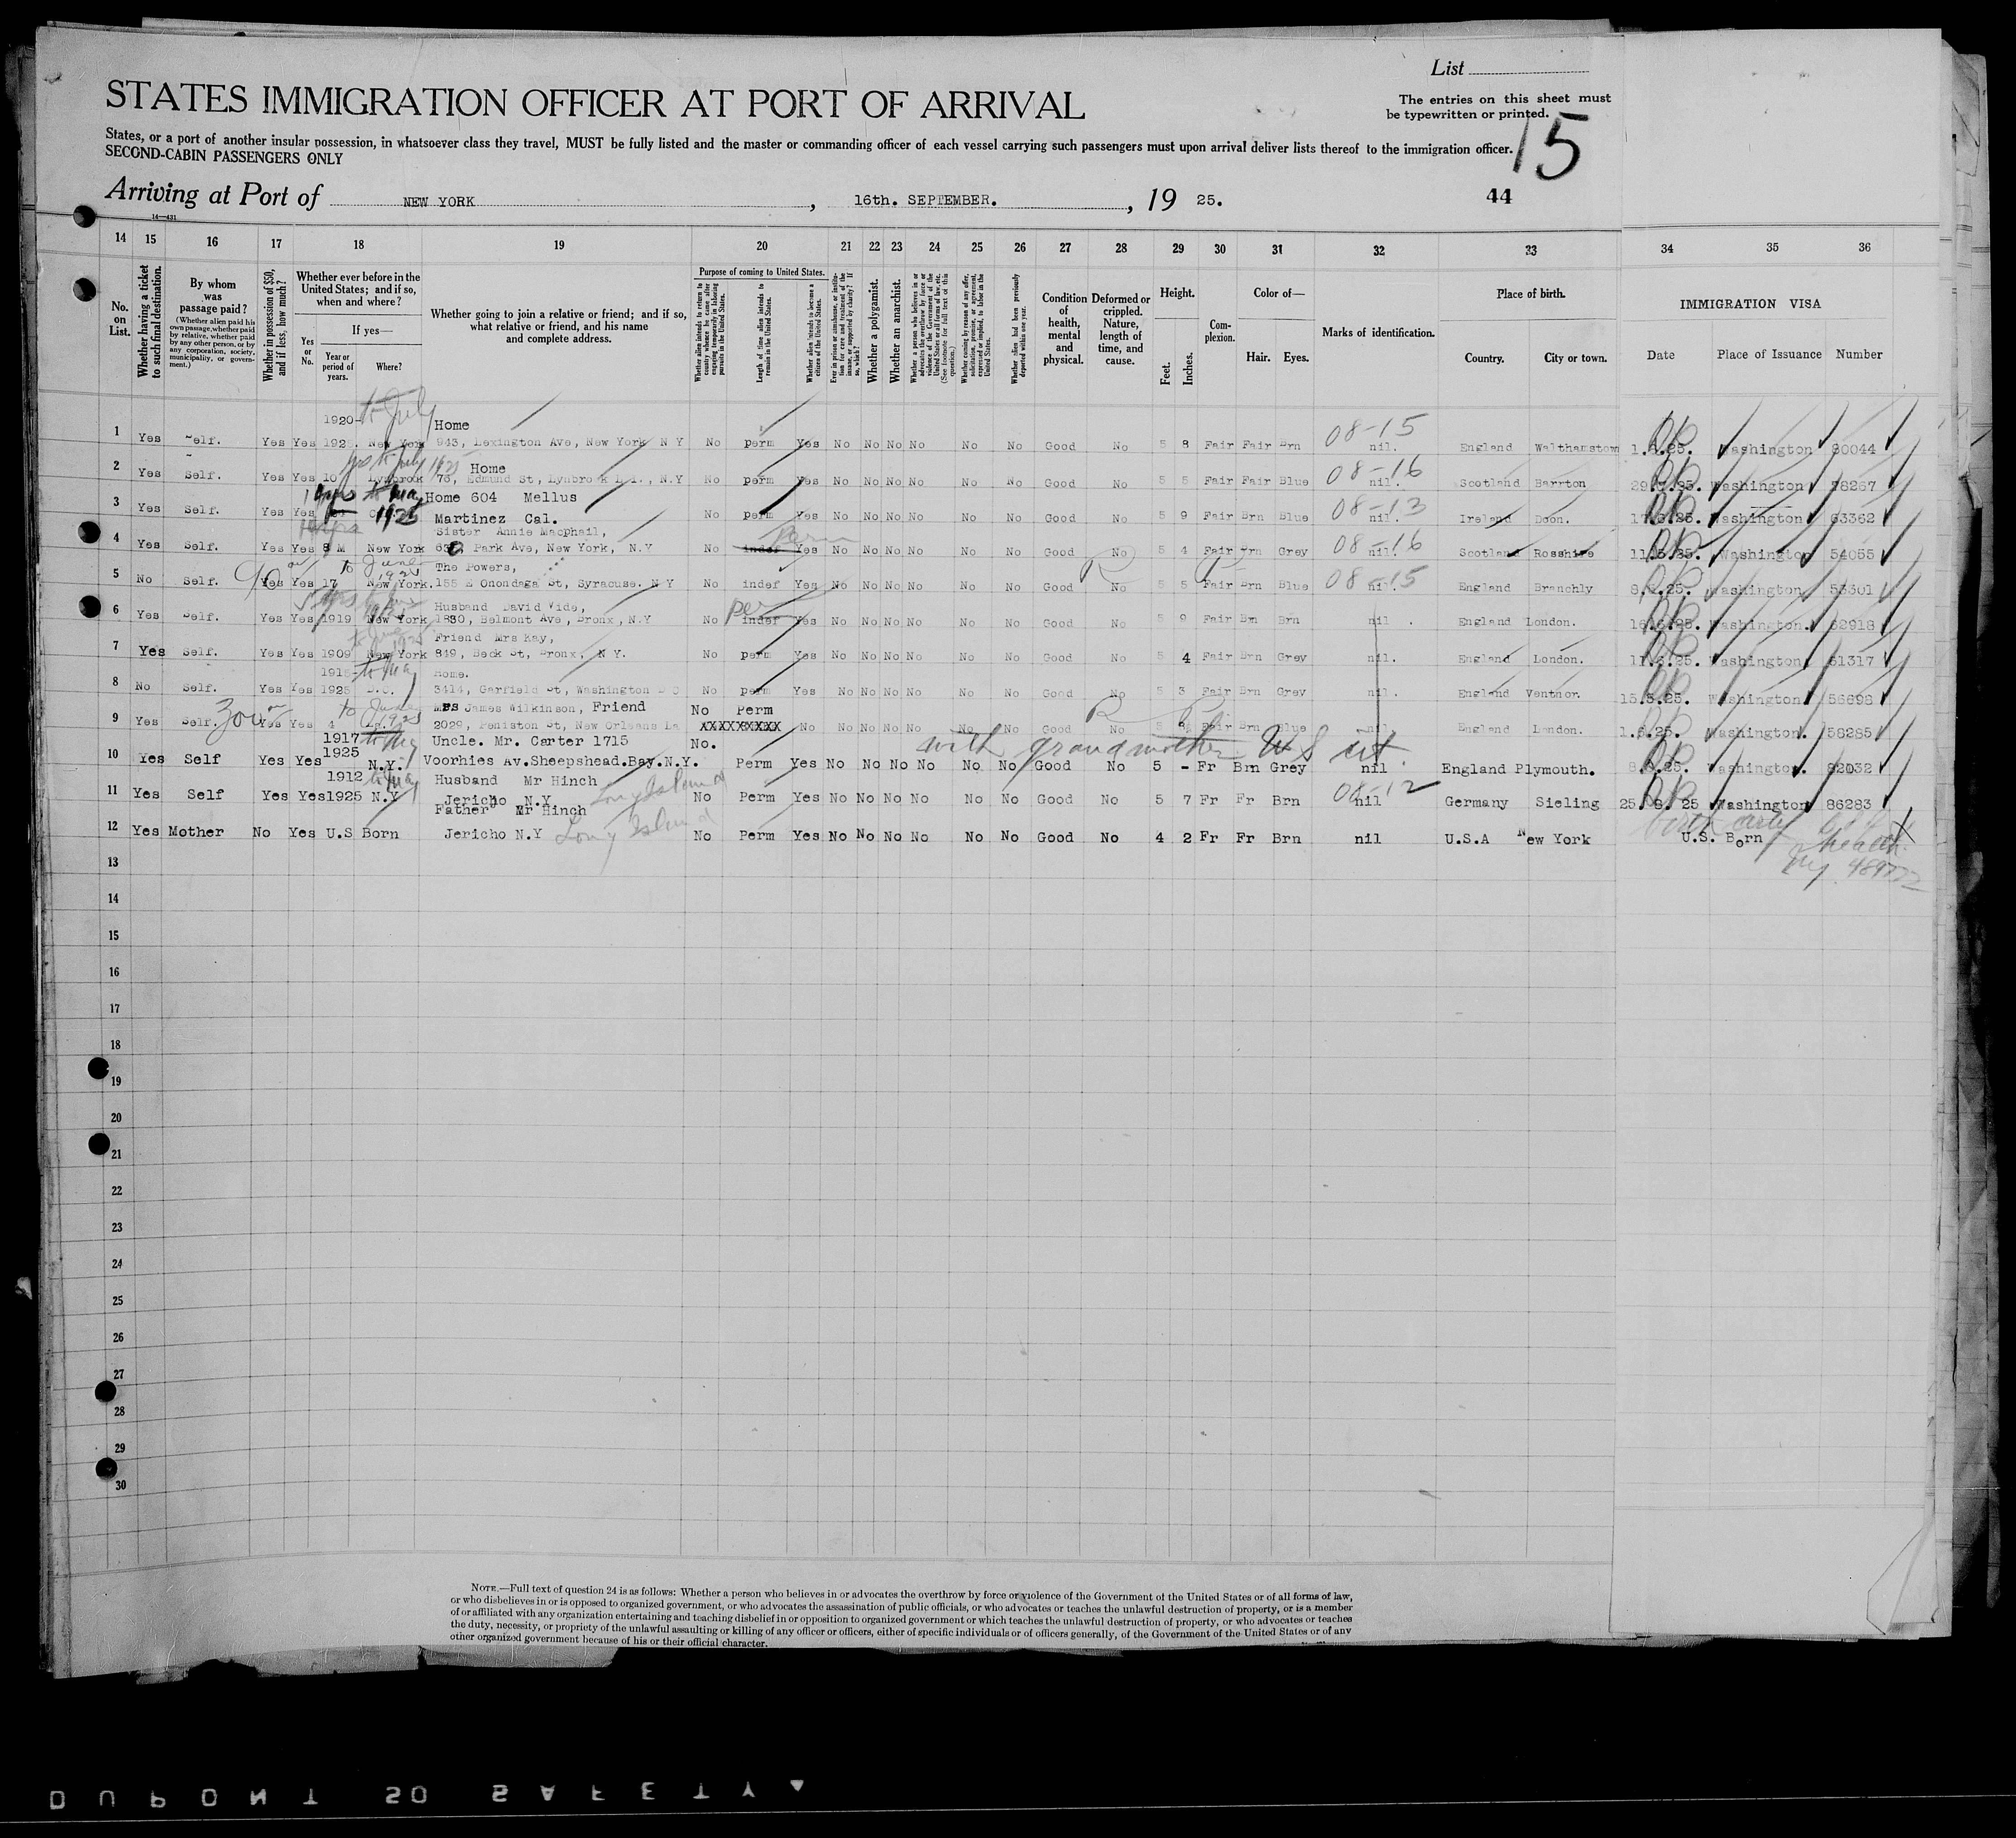 List
STATES IMMIGRATION OFFICER AT PORT OF ARRIVAL
The entries on this sheet must
be typewritten or printed.
15
States, or a port of another insular possession, in whatsoever class they travel, MUST be fully listed and the master or commanding officer of each vessel carrying such passengers must upon arrival deliver lists thereof to the immigration officer.
SECOND-CABIN PASSENGERS ONLY
Arriving at Port of NEW YORK, 16th. SEPTEMBER., 19 25.
44
14—431
14 15 16 17 18 19 20 21 22 23 24 25 26 27 28 29 30 31 32 33 34 35 36
No. on List.
Whether having a ticket to such final destination.
By whom was passage paid?
(Whether alien paid his own passage, whether paid by relative, whether paid by any other person, or by any corporation, society, municipality, or government.)
Whether in possession of $50, and if less, how much?
Whether ever before in the United States; and if so, when and where?
Yes or No.
If yes—
Year or period of years.
Where?
Whether going to join a relative or friend; and if so, what relative or friend, and his name and complete address.
Purpose of coming to United States.
Length of time alien intends to remain in the United States.
Whether alien intends to become a citizen of the United States.
Whether a polygamist.
Whether an anarchist.
Whether alien had been previously deported within one year.
Condition of health, mental and physical.
Deformed or crippled. Nature, length of time, and cause.
Height.
Feet. Inches.
Complexion.
Color of—
Hair. Eyes.
Marks of identification.
Place of birth.
Country. City or town.
IMMIGRATION VISA
Date Place of Issuance Number
1920- to July Home
1 Yes Self. Yes Yes 1925. New York 943, Lexington Ave, New York N Y No perm Yes No No No No No No Good No 5 8 Fair Fair Brn 08-15 nil. England Walthamstow Washington 80044
Home
2 Yes Self. Yes Yes 10 Lynbrook 76, Edmund St, Lynbrook L.I., N.Y No perm Yes No No No No No No Good No 5 5 Fair Fair Blue 08-16 nil. Scotland Barrton Washington 78267
Home 604 Mellus
3 Yes Self. Yes Yes 1925 Martinez Cal. No perm Yes No No No No No No Good No 5 9 Fair Brn Blue 08-13 nil. Ireland Doon. Washington 63362
Sister Annie Macphail, Perm
4 Yes Self. Yes Yes 8 M New York Park Ave, New York, N.Y No indef Yes No No No No No No Good No 5 4 Fair Brn Grey 08-16 nil. Scotland Rosshire Washington 54055
to June 1925 The Powers,
5 No Self. Yes Yes 17 New York. 155 E Onondaga St, Syracuse. N Y No indef Yes No No No No No No Good No 5 5 Fair Brn Blue 08-15 nil. England Branchly Washington 53301
Husband David Vide, per
6 Yes Self. Yes Yes 1919 New York 1830, Belmont Ave, Bronx, N.Y No indef Yes No No No No No No Good No 5 9 Fair Brn Brn nil. England London. Washington. 62918
Friend Mrs Kay,
7 Yes Self. Yes Yes 1909 New York 849, Beck St, Bronx, N Y. No perm Yes No No No No No No Good No 5 4 Fair Brn Grey nil. England London. Washington 61317
Home.
8 No Self. Yes Yes 1925 D.C. 3414, Garfield St, Washington D C No perm Yes No No No No No No Good No 5 3 Fair Brn Grey nil. England Ventnor. Washington 56698
to June 1925 Mrs James Wilkinson, Friend No Perm
9 Yes Self. Yes Yes 4 2029, Peniston St, New Orleans La XXXXXXXXX No No No No No No No Good No Fair Brn Blue nil. England London. Washington. 58285
1917 Uncle. Mr. Carter 1715 No. with grandmother US cit.
10 Yes Self Yes Yes 1925 N.Y. Voorhies Av. Sheepshead.Bay.N.Y. Perm Yes No No No No No No Good No 5 - Fr Brn Grey nil England Plymouth. Washington. 82032
1912 Husband Mr Hinch Long Island 08-12
11 Yes Self Yes Yes 1925 N.Y Jericho N.Y No Perm Yes No No No No No No Good No 5 7 Fr Fr Brn nil Germany Sieling Washington 86283
Father Mr Hinch
12 Yes Mother No Yes U.S Born Jericho N.Y Long Island No Perm Yes No No No No No No Good No 4 2 Fr Fr Brn nil U.S.A New York U.S. Born
13
14
15
16
17
18
19
20
21
22
23
24
25
26
27
28
29
30
NOTE.—Full text of question 24 is as follows: Whether a person who believes in or advocates the overthrow by force or violence of the Government of the United States or of all forms of law,
or who disbelieves in or is opposed to organized government, or who advocates the assassination of public officials, or who advocates or teaches the unlawful destruction of property, or is a member
of or affiliated with any organization entertaining and teaching disbelief in or opposition to organized government or which teaches the unlawful destruction of property, or who advocates or teaches
the duty, necessity, or propriety of the unlawful assaulting or killing of any officer or officers, either of specific individuals or of officers generally, of the Government of the United States or of any
other organized government because of his or their official character.
DUPONT 50 SAFETY